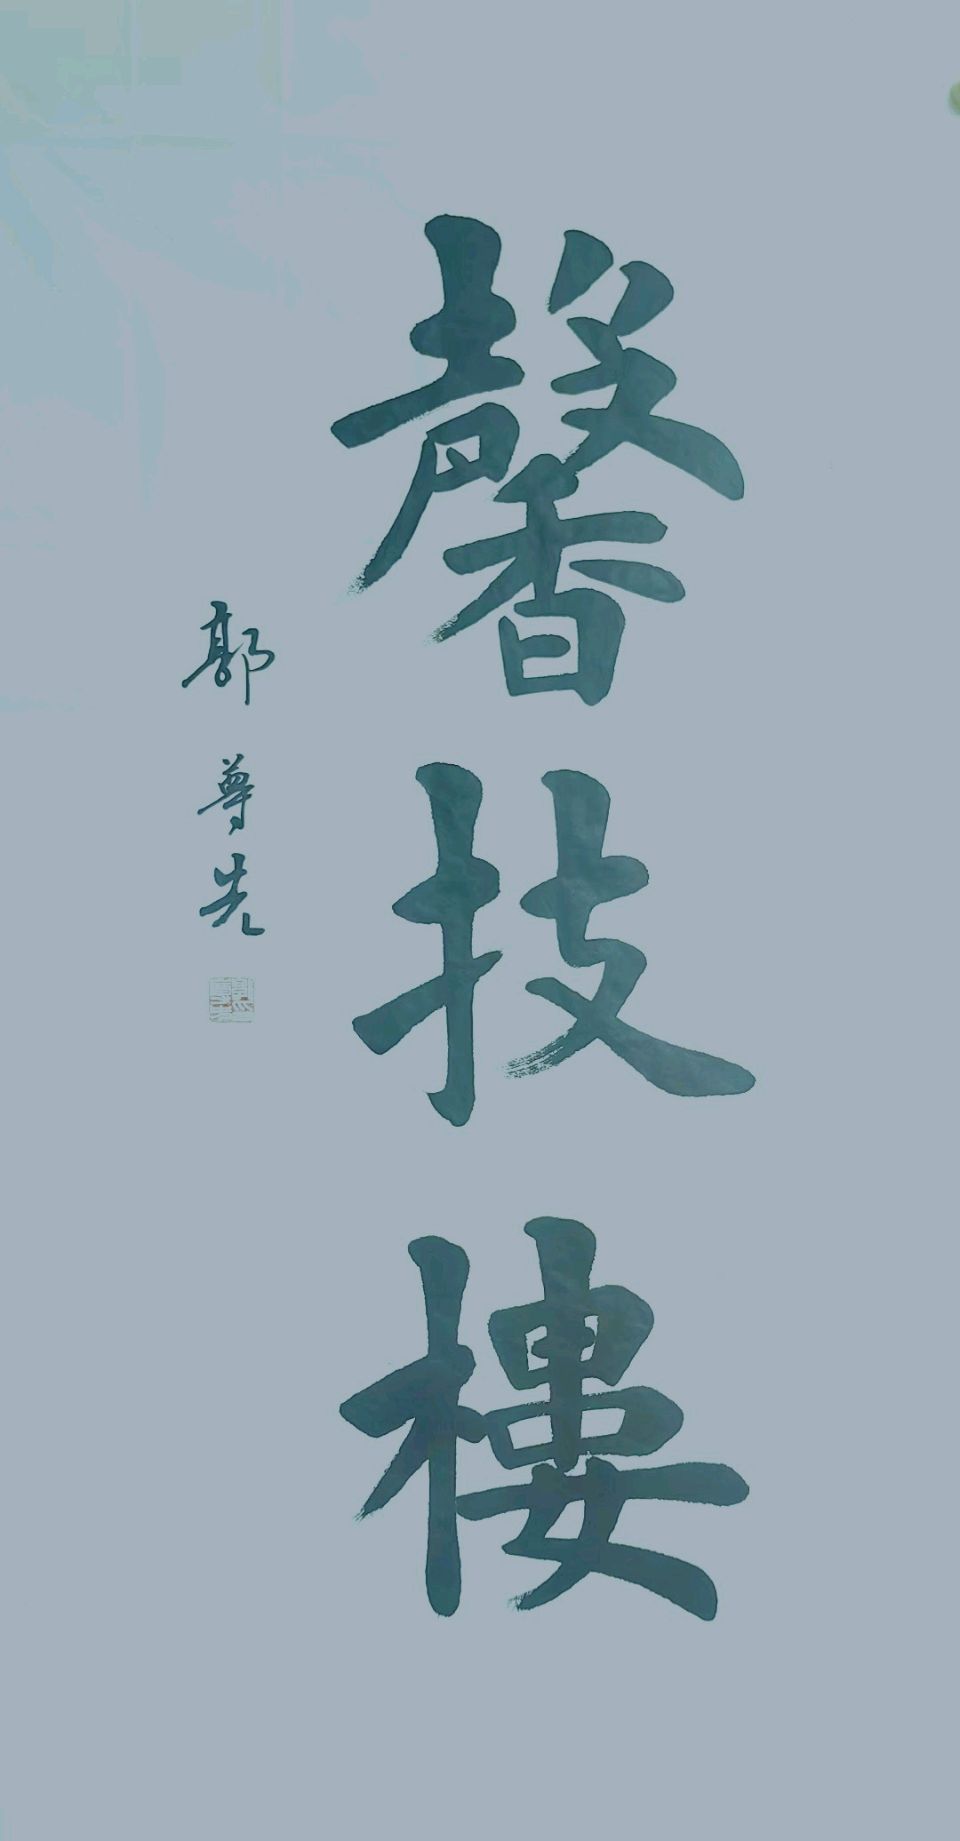 馨技樓
郭尊先